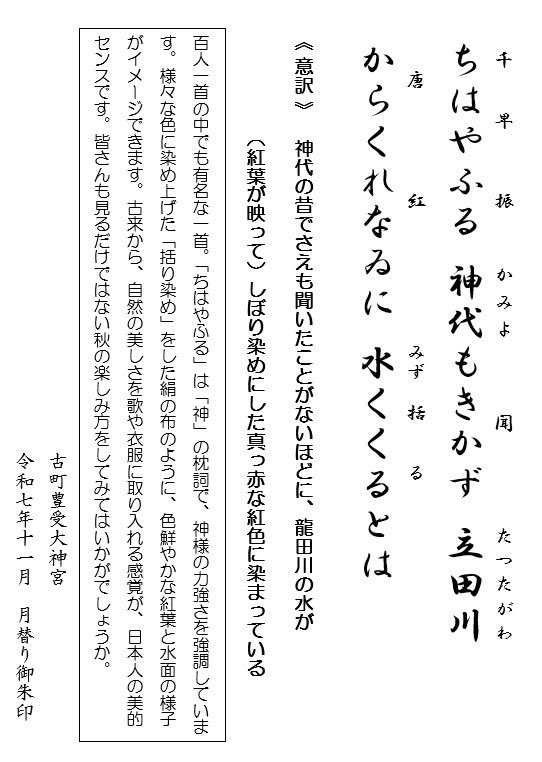 千早振 かみよ 聞 たつたがわ
ちはやふる 神代もきかず 立田川
唐紅 みず括る
からくれなゐに 水くくるとは
《意訳》 神代の昔でさえも聞いたことがないほどに、龍田川の水が
(紅葉が映って)しぼり染めにした真っ赤な紅色に染まっている
百人一首の中でも有名な一首。「ちはやふる」は「神」の枕詞で、神様の力強さを強調していま
す。様々な色に染め上げた「括り染め」をした絹の布のように、色鮮やかな紅葉と水面の様子
がイメージできます。古来から、自然の美しさを歌や衣服に取り入れる感覚が、日本人の美的
センスです。皆さんも見るだけではない秋の楽しみ方をしてみてはいかがでしょうか。
古町豊受大神宮
令和七年十一月 月替り御朱印